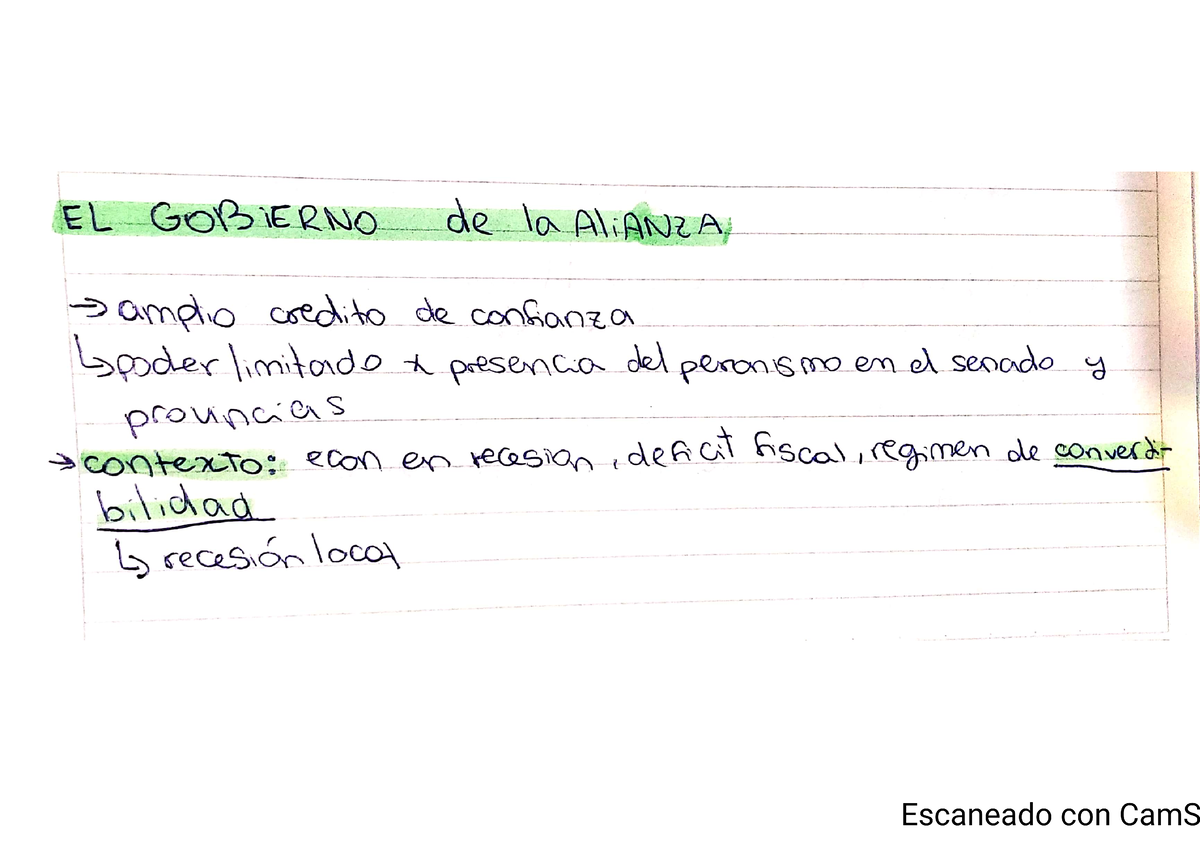 EL GOBIERNO de la AliANZA
→ amplio credito de confianza
↳ poder limitado x presencia del peronismo en el senado y
provincias
→ contexto: econ en recesion, deficit fiscal, regimen de converti-
bilidad
↳ recesión local
Escaneado con CamS